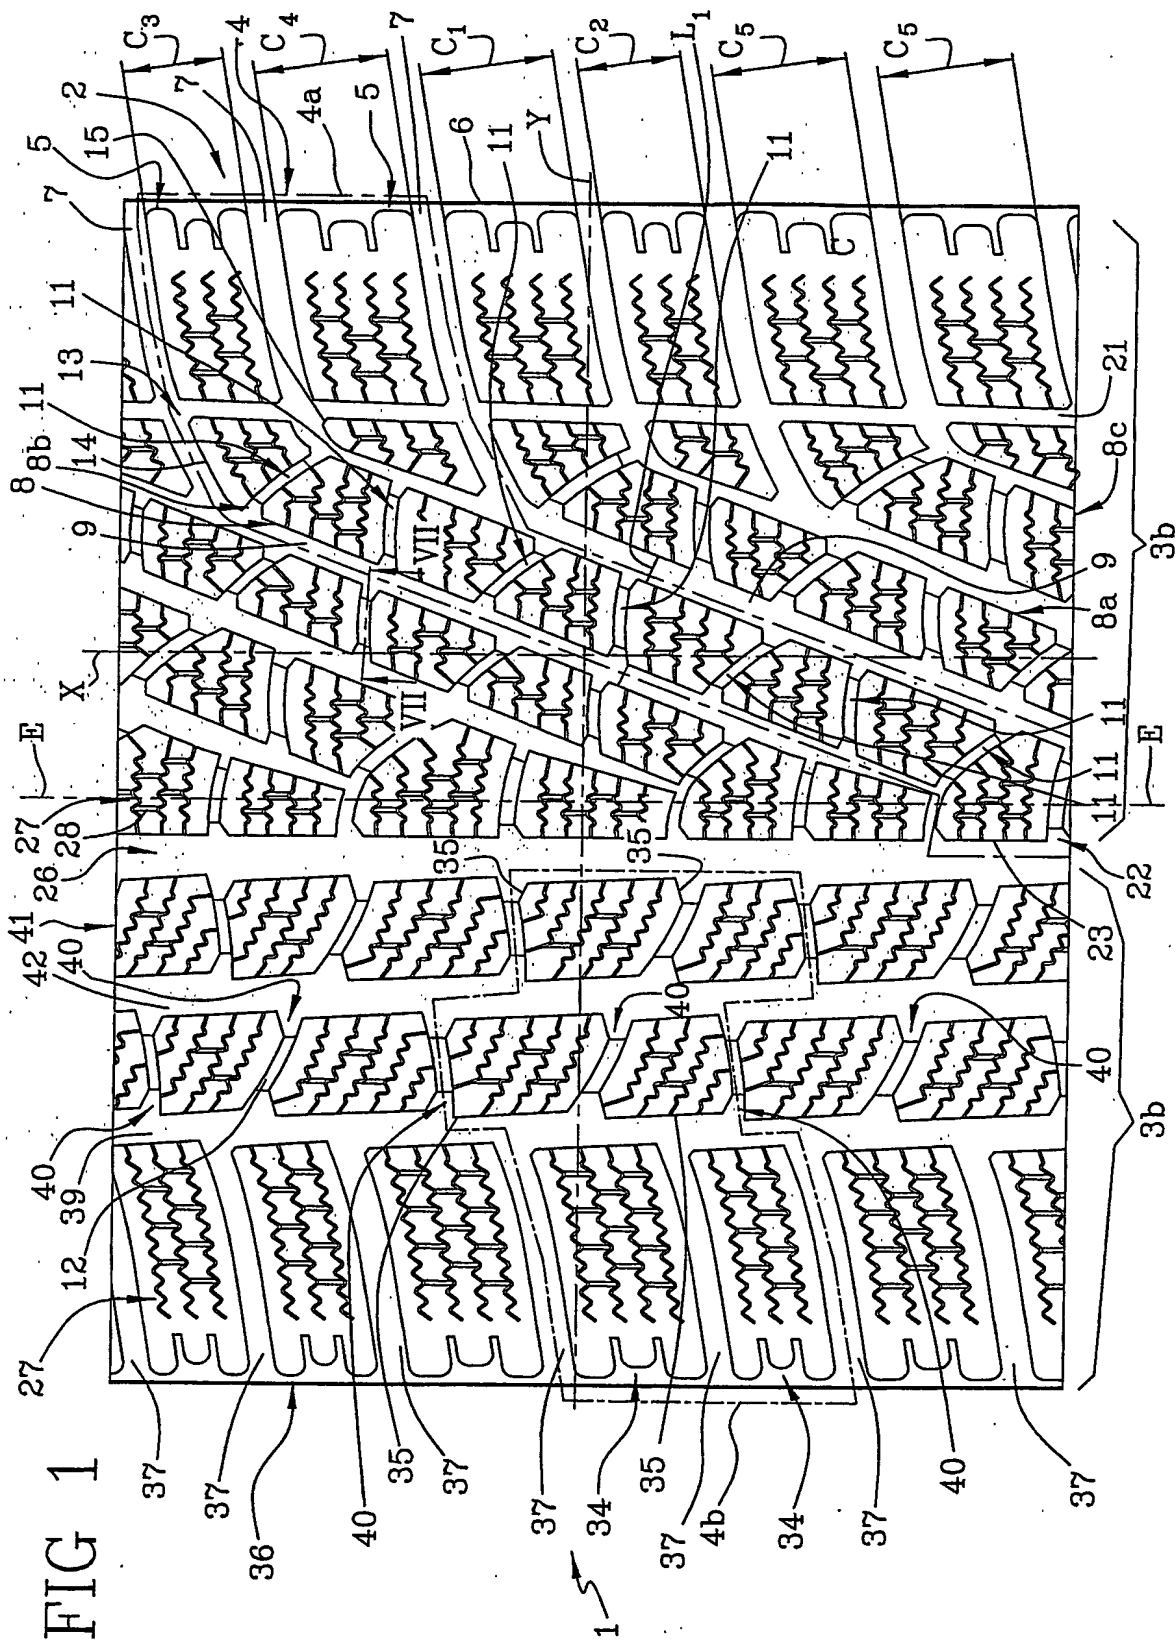 FIG 1
C3
4
C4
7
C1
C2
L1
C5
C5
2
7
15
5
7
4a
5
6
11
Y
11
11
13
11
14
8b
8
9
VII
VII
X
E
27
28
26
41
42
40
40
39
12
27
C
21
8c
3b
9
8a
11
11
11
E
22
23
35
35
40
40
3b
37
37
36
40
35
37
37
34
35
37
4b
34
37
40
37
1